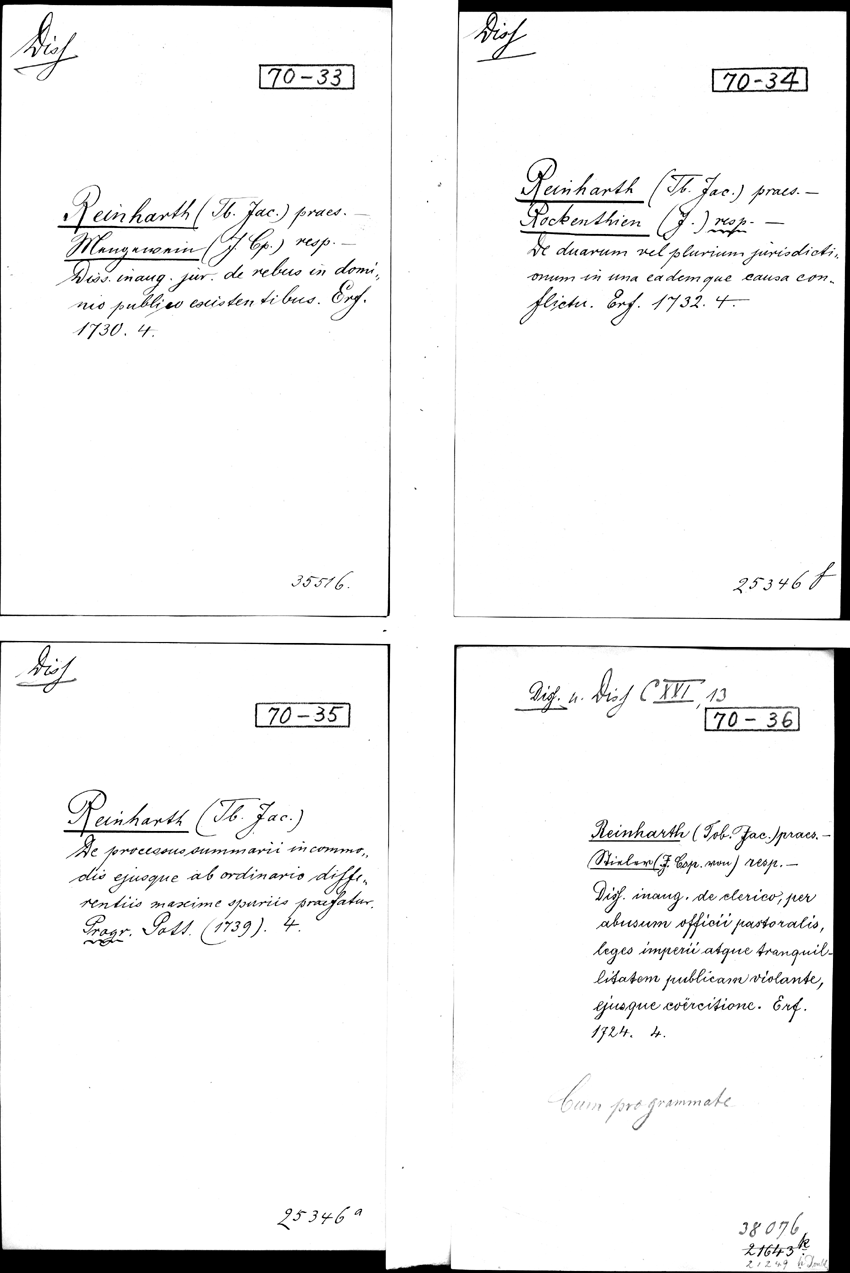 Diss
70-33
Reinharth (Tb. Jac.) praes. —
Mengewein (J. Cp.) resp. —
Diss. inaug. jur. de rebus in domi-
nio publico existentibus. Erf.
1730. 4.
35516.
Diss
70-34
Reinharth (Tb. Jac.) praes. —
Rockenthien (J.) resp. —
De duarum vel plurium jurisdicti-
onum in una eademque causa con-
flictu. Erf. 1732. 4.
25346 f
Diss
70-35
Reinharth (Tb. Jac.)
De processus summarii incommo-
dis ejusque ab ordinario diffe-
rentiis maxime spuriis praefatur.
Progr. Gott. (1739). 4.
25346 a
Diss. u. Diss C XXVI, 13
70-36
Reinharth (Tob. Jac.) praes. —
Stieler (J. Csp. von) resp. —
Diss. inaug. de clerico, per
abusum officii pastoralis,
leges imperii atque tranquil-
litatem publicam violante,
ejusque coërcitione. Erf.
1724. 4.
Cum programmate
38076
21643 k
21249